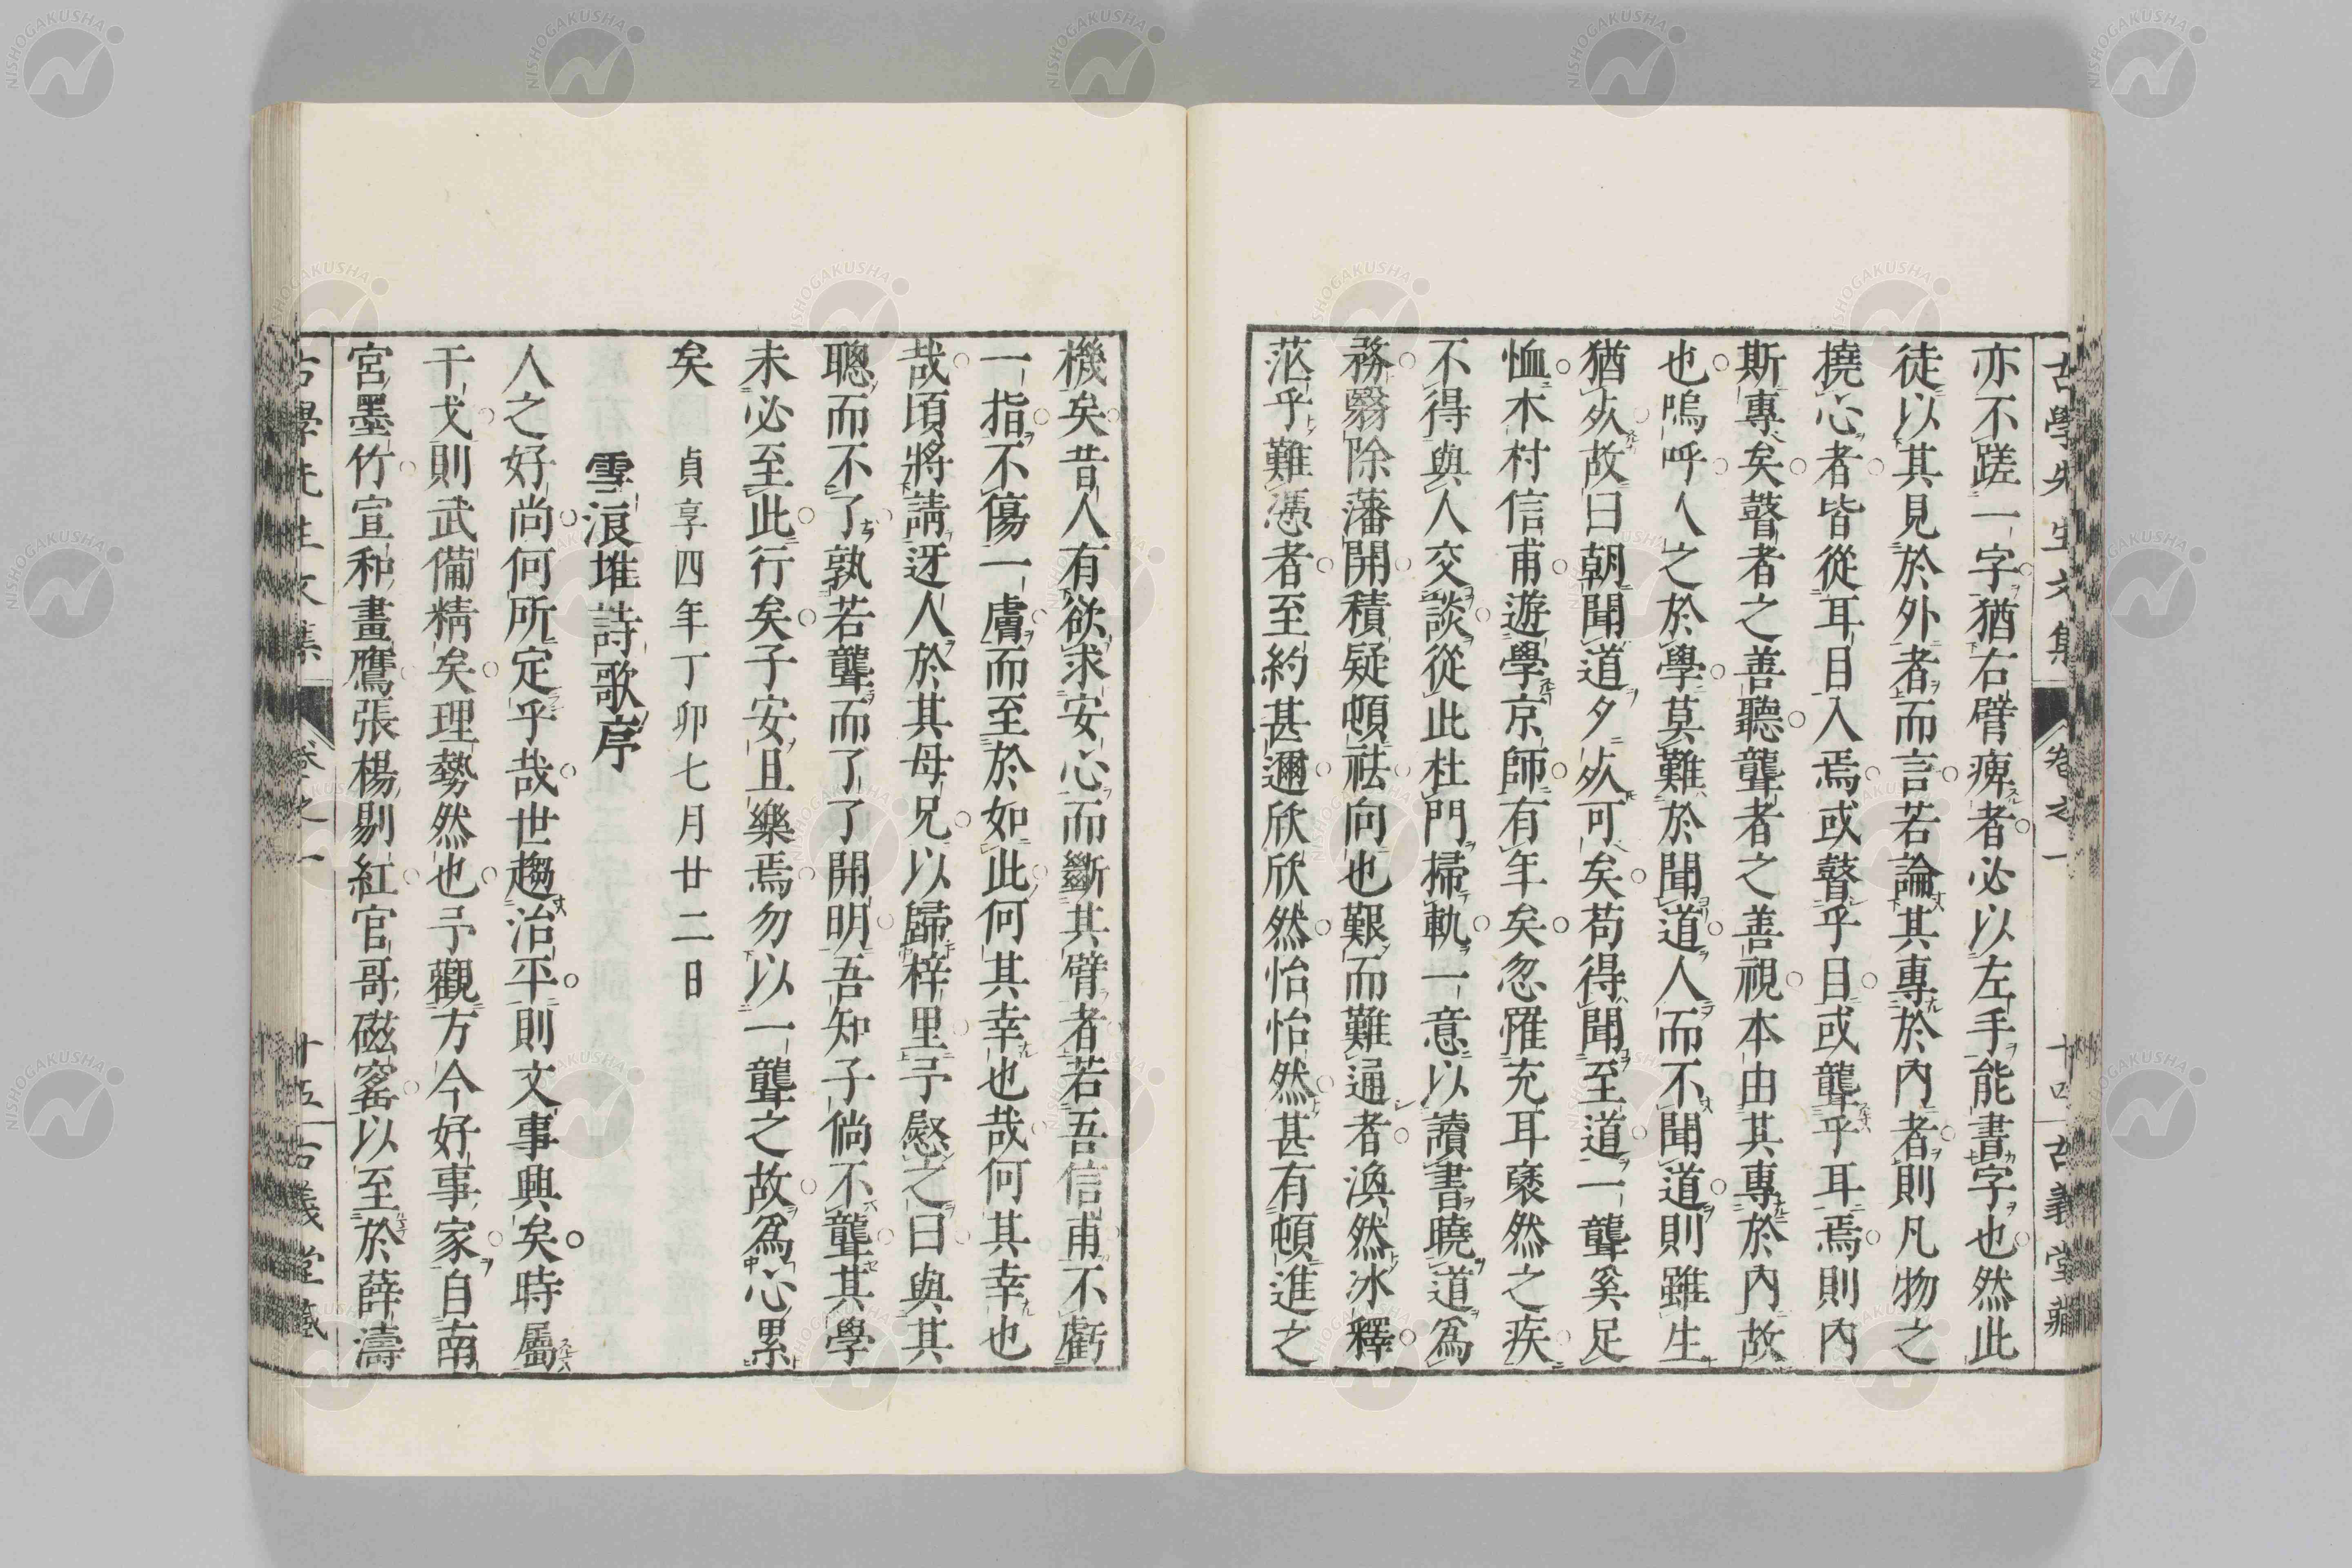 古學先生文集 卷之一 十四 古義堂藏
亦不蹉一字猶右臂痺者必以左手能書字也然此
徒以其見於外者而言若論其專於內者則凡物之
撓心者皆從耳目入焉或瞽乎目或聾乎耳焉則內
斯專矣瞽者之善聽聾者之善視本由其專於內故
也嗚呼人之於學莫難於聞道人而不聞道則雖生
猶死故曰朝聞道夕死可矣苟得聞至道一聾奚足
恤木村信甫遊學京師有年矣忽罹充耳褎然之疾
不得與人交談從此杜門掃軌一意以讀書曉道爲
務翳除藩開積疑頓祛向也艱而難通者渙然冰釋
茫乎難憑者至約甚邇欣欣然怡怡然甚有頓進之
機矣昔人有欲求安心而斷其臂者若吾信甫不虧
一指不傷一膚而至於如此何其幸也哉何其幸也
哉頃將請迓人於其母兄以歸梓里予慰之曰與其
聰而不了孰若聾而了了開明吾知子倘不聾其學
未必至此行矣子安且樂焉勿以一聾之故爲心累
矣
貞享四年丁卯七月廿二日
雪浪堆詩歌序
人之好尚何所定乎哉世趨治平則文事興矣時屬
干戈則武備精矣理勢然也予觀方今好事家自南
宮墨竹宣和畫鷹張楊剔紅官哥磁窰以至於薛濤
古學先生文集 卷之一 廿五 古義堂藏